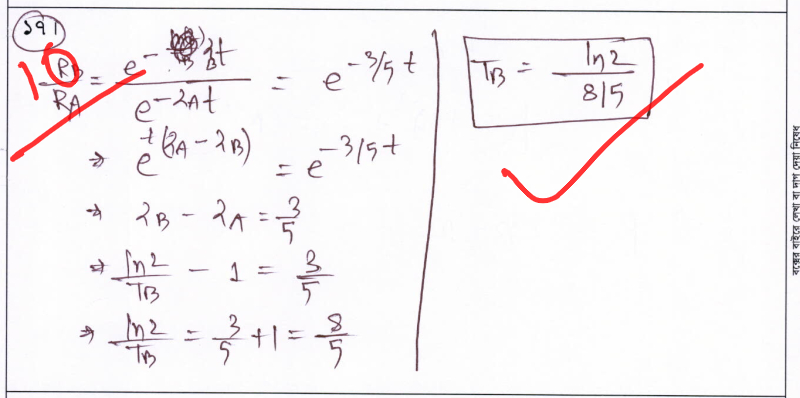 ১৭।
10
R_B/R_A = e^-λ_B t / e^-λ_A t = e^-3/5 t
⇒ e^t(λ_A - λ_B) = e^-3/5 t
⇒ λ_B - λ_A = 3/5
⇒ ln2/T_B - 1 = 3/5
⇒ ln2/T_B = 3/5 + 1 = 8/5
T_B = ln2 / 8/5
বক্সের বাইরে লেখা বা দাগ দেয়া নিষেধ